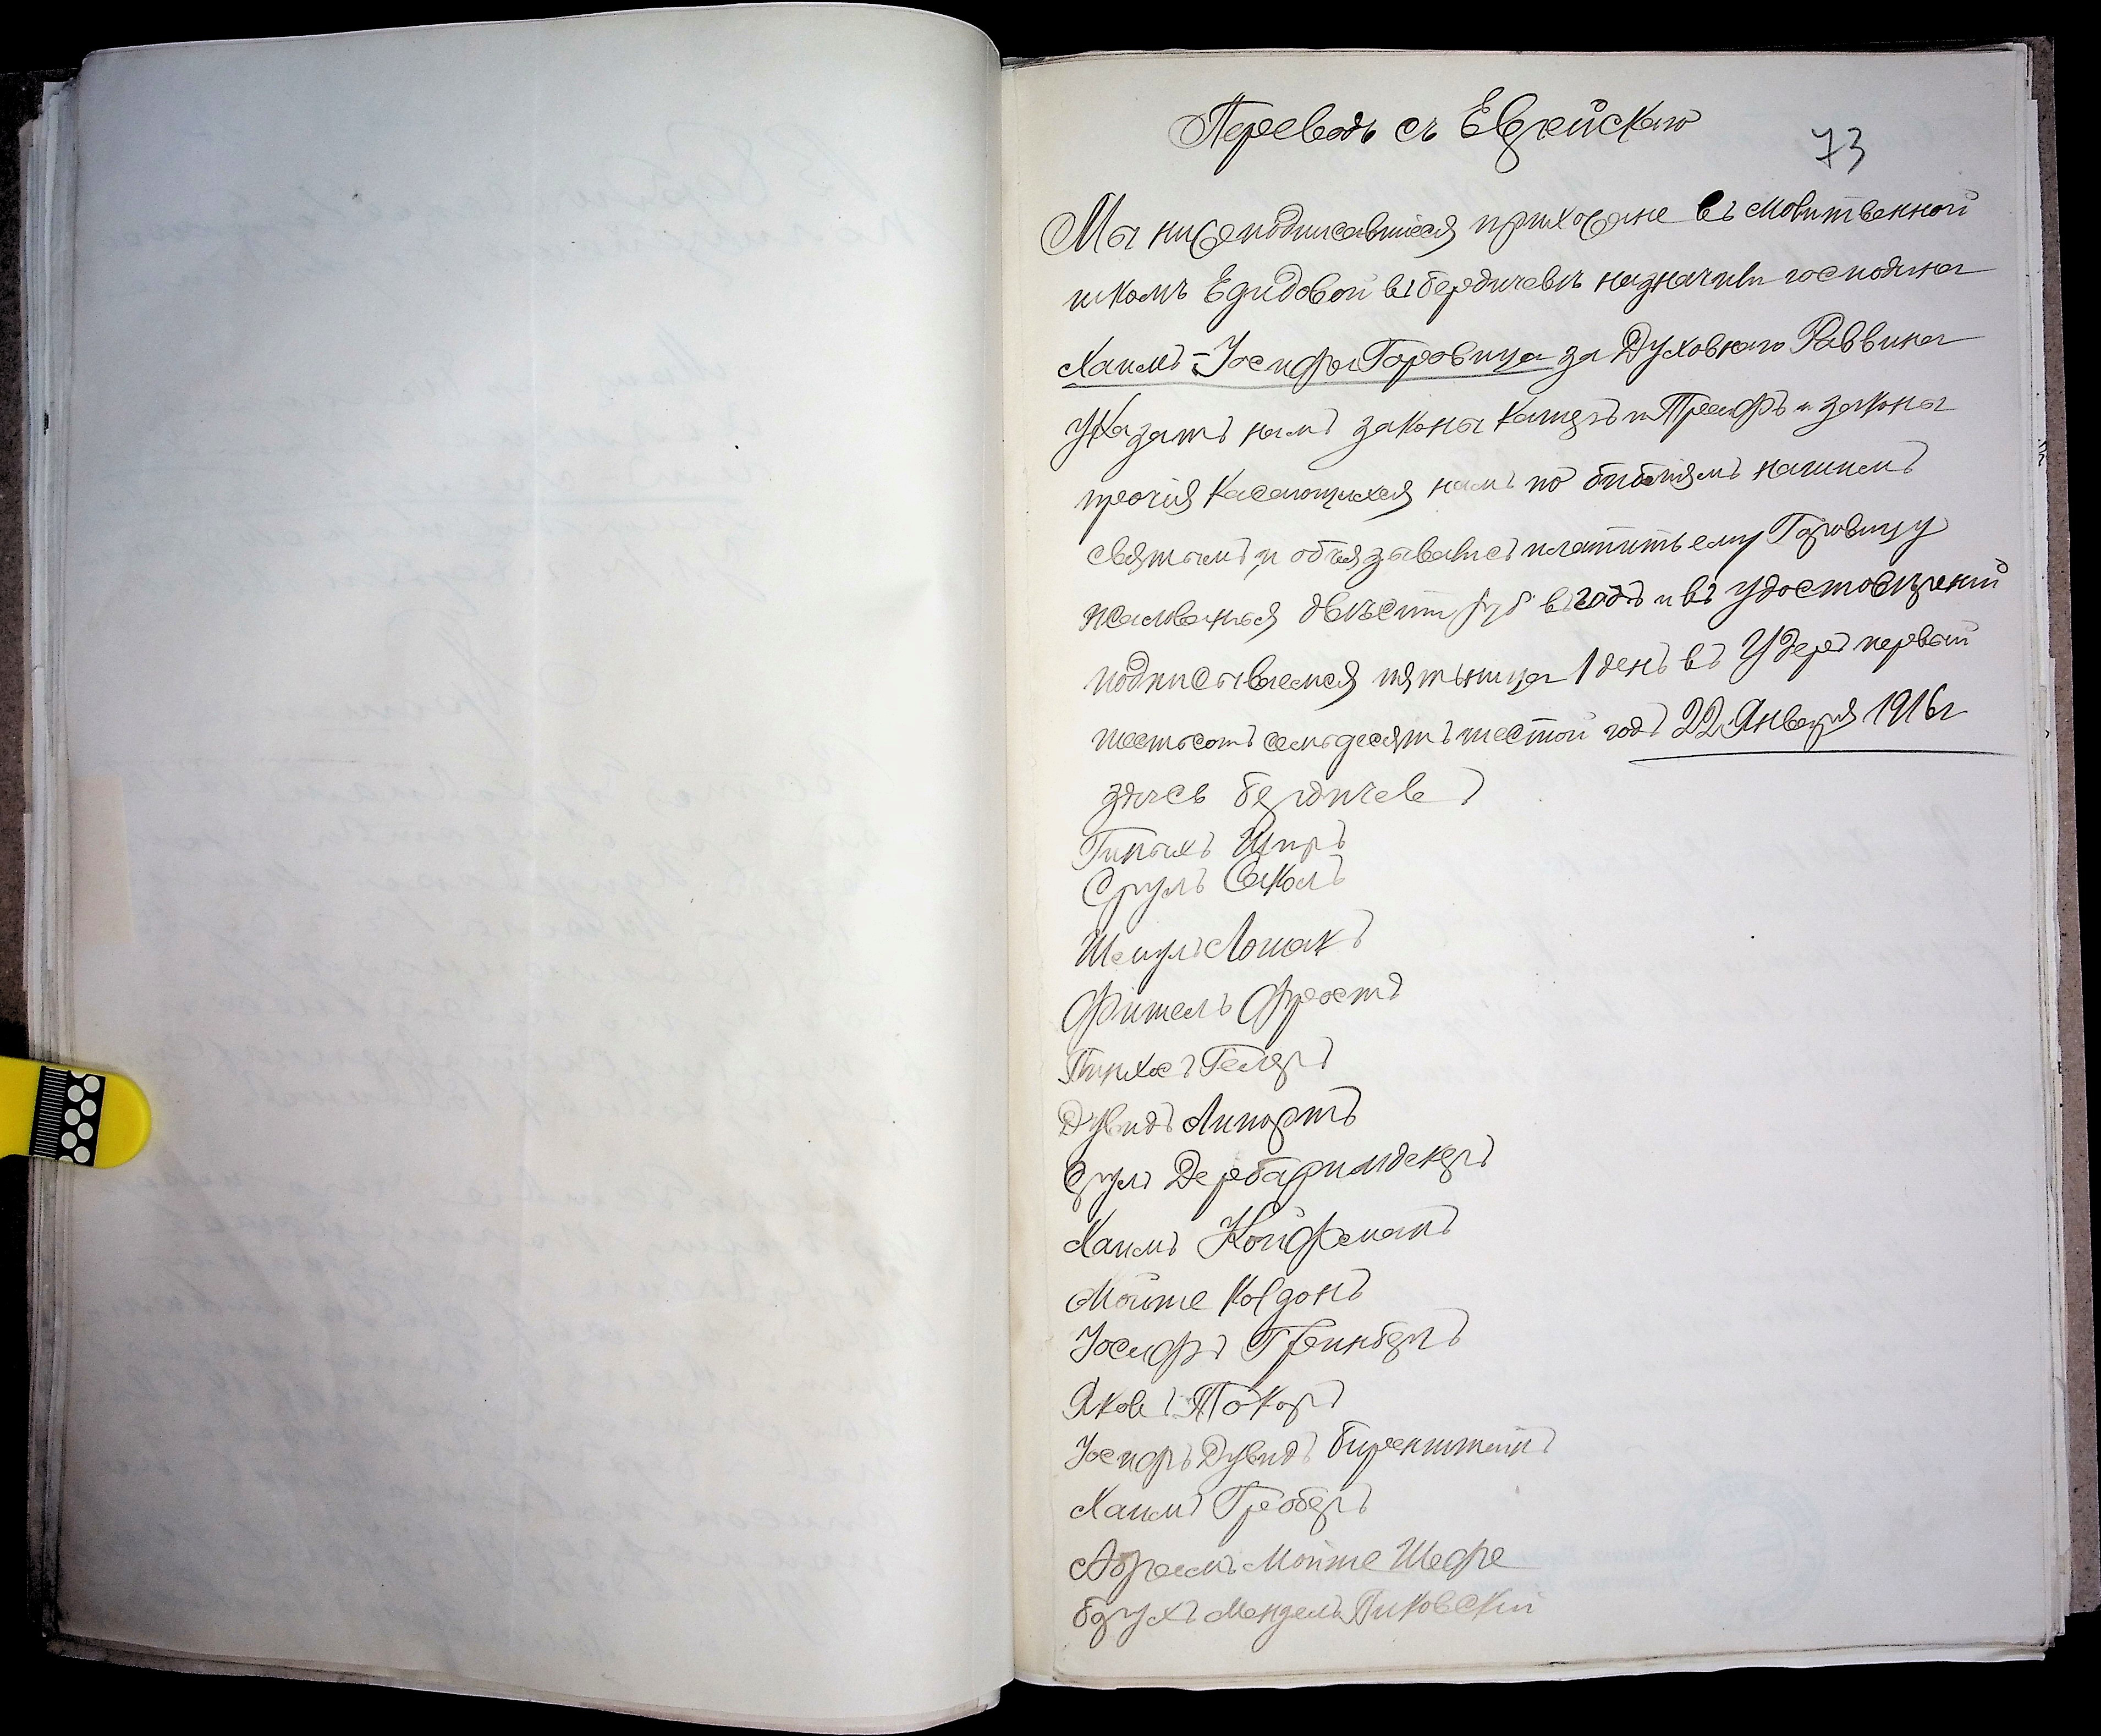 Переводъ съ Еврейскаго
73
Мы нижеподписавшiеся прихожане въ молитвенной
школѣ въ Бердичевѣ назначили господина
Хаимъ-Iосифа Горовица за Духовнаго Раввина
указать намъ законы Кашеръ и Трефъ и законы
прочiя касающихся намъ по библiямъ нашимъ
святымъ и обязывались платить ему Горовицу
жалованья двѣсти руб въ годъ и въ удостовѣренiи
подписываемся пятьница 1 день въ Удеръ первый
шестьсотъ семьдесятъ шестой годъ 22 Января 1916г
здѣсь Бердичевъ
Шпиръ
Сруль Соколъ
Лошакъ
Фишель Фростъ
Пинхосъ Гелеръ
Дувидъ Липортъ
Сруль Дербаримдекеръ
Хаимъ Койфманъ
Мойше
Iосифъ Гринбергъ
Яковъ Токоръ
Iосифъ Дувидъ Биренштейнъ
Хаимъ Гроберъ
Абрамъ Мойше
Борухъ Мендель Пиковскiй